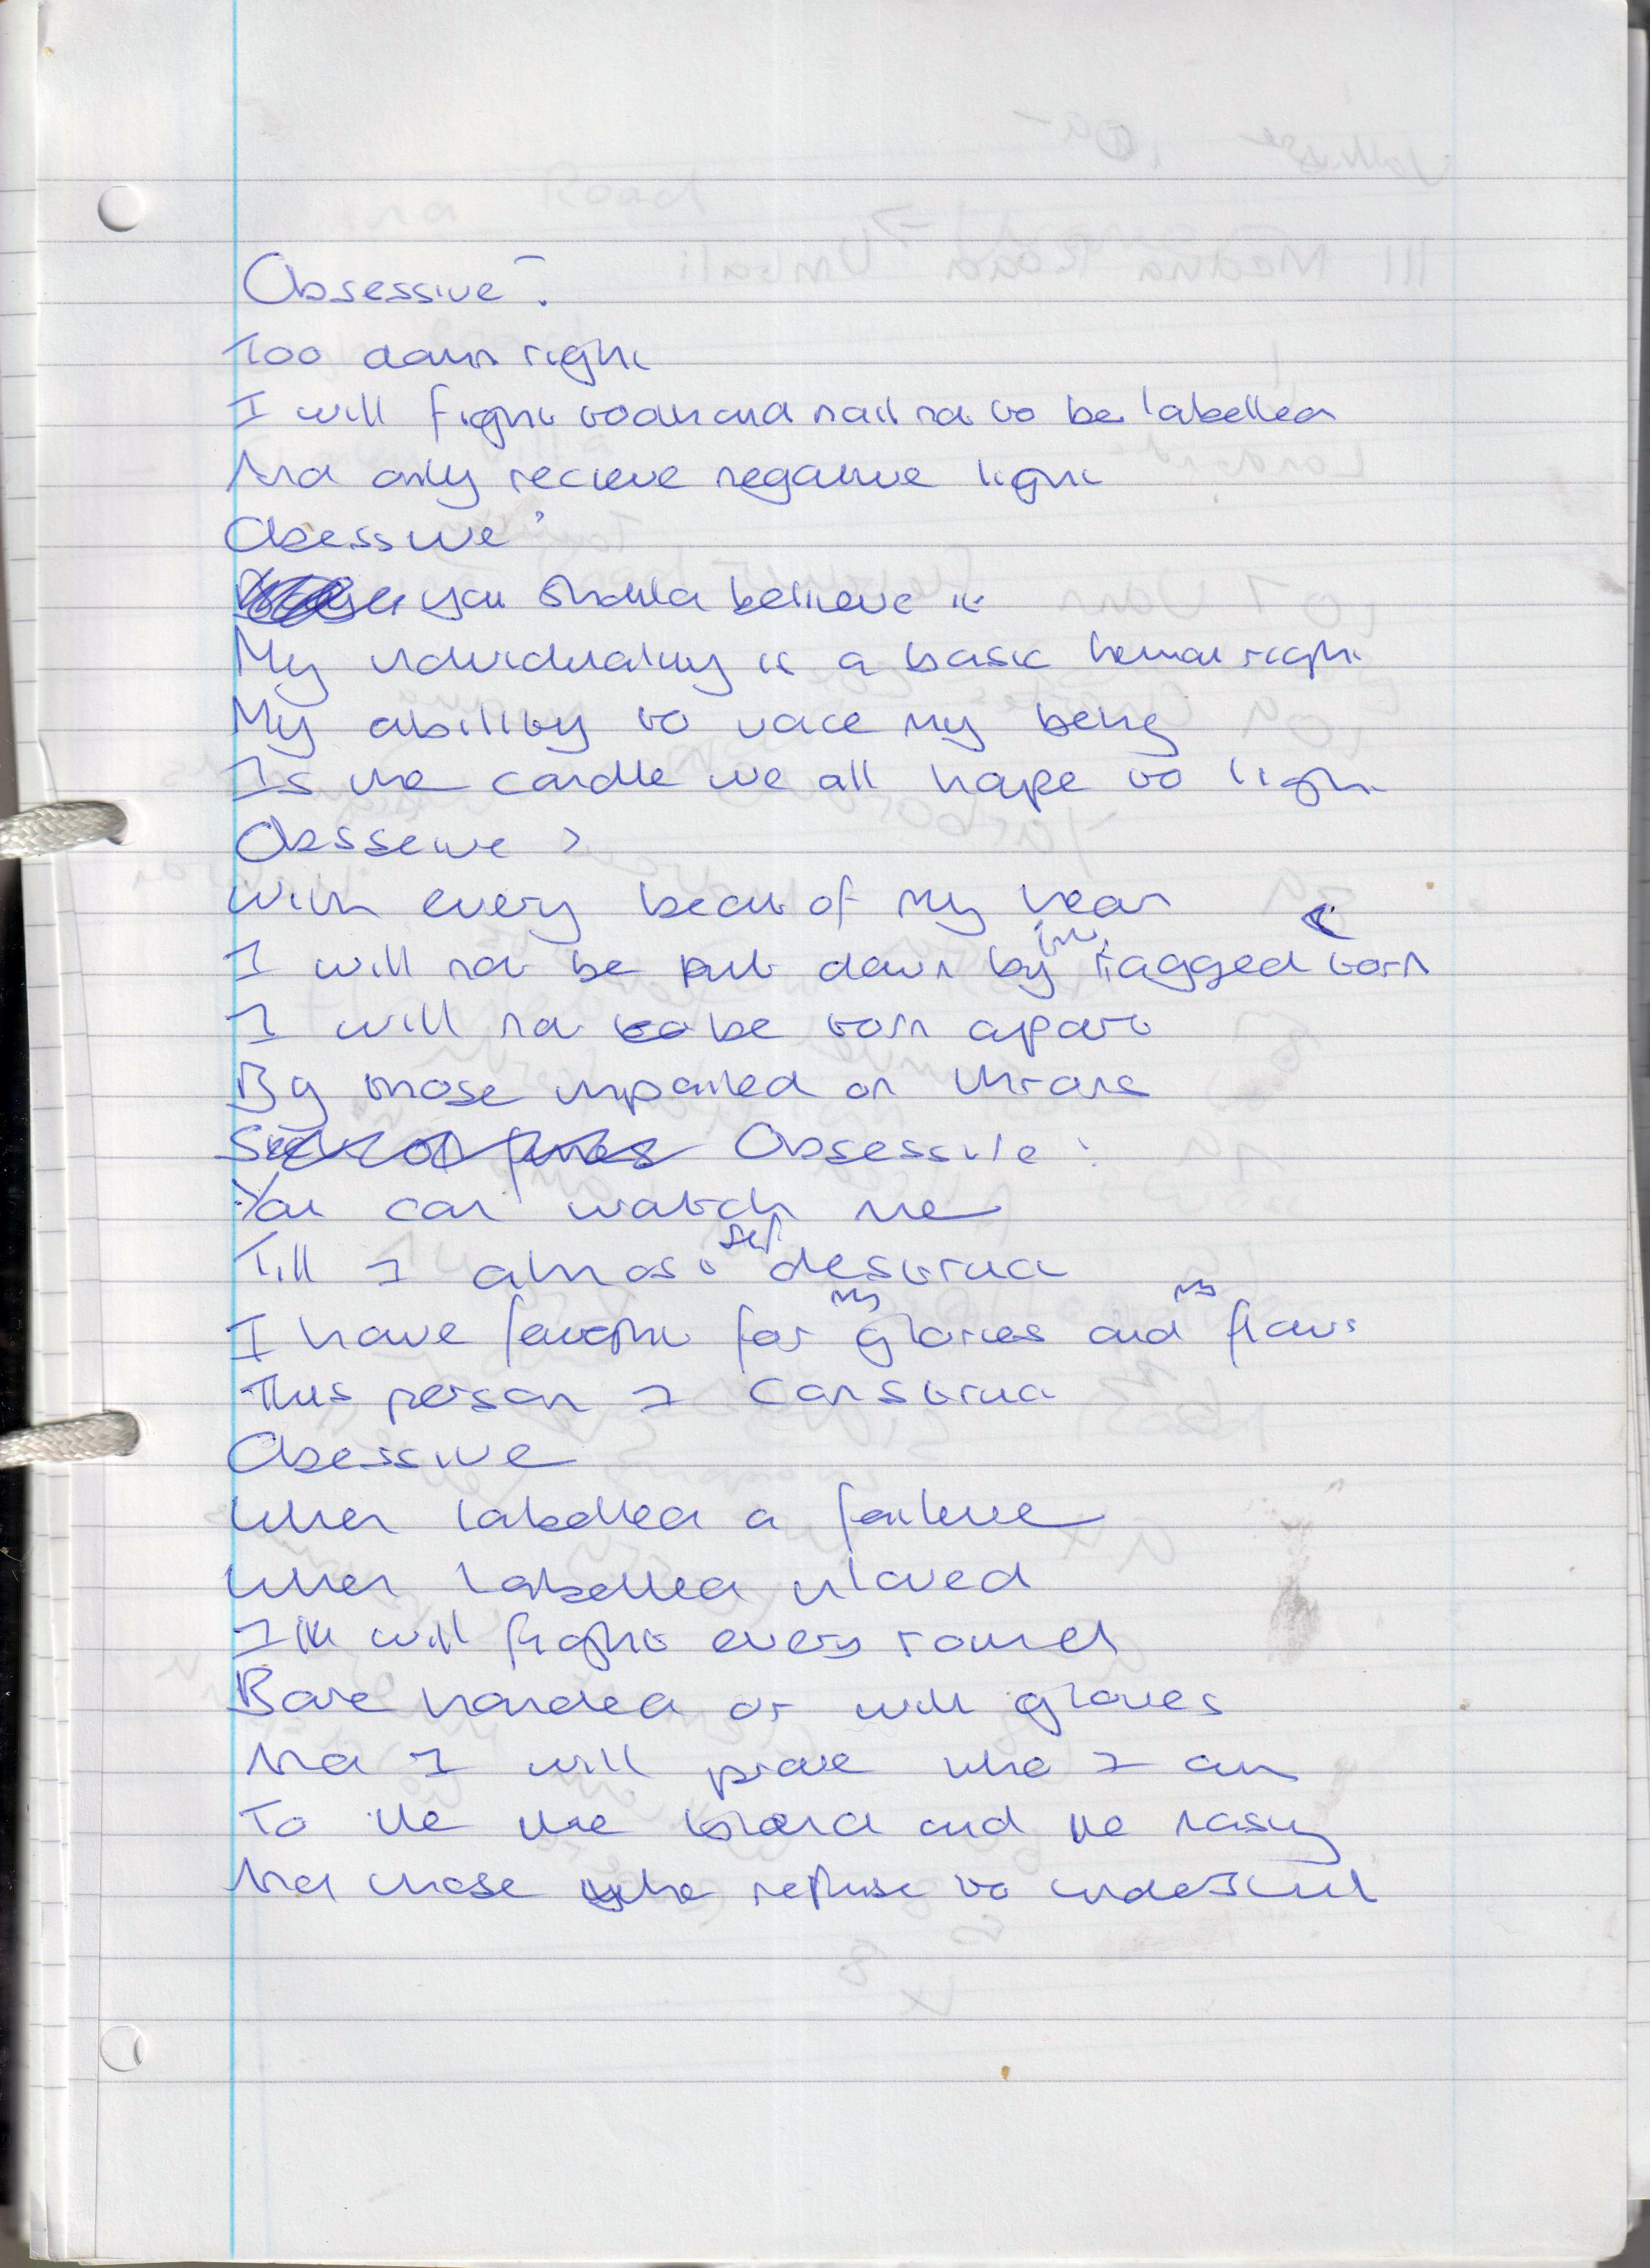 Obsessive?
Too damn right
I will fight tooth and nail not to be labelled
And only recieve negative light
Obessive?
you should believe it
My individuality is a basic human right
My ability to voice my being
Is the candle we all hope to light
Obsseive?
With every beat of my heart
I will not be put down by the ragged torn
I will not be torn apart
By those unpaired on thrones
Obsessive?
You can watch me
Till I almost self destruct
I have fought for my glories and my flaws
This person I construct
Obessive
When labelled a failure
When labelled unloved
I will fight every round
Bare handed or with gloves
And I will prove who I am
To the the and the nasty
And those who refuse to understand